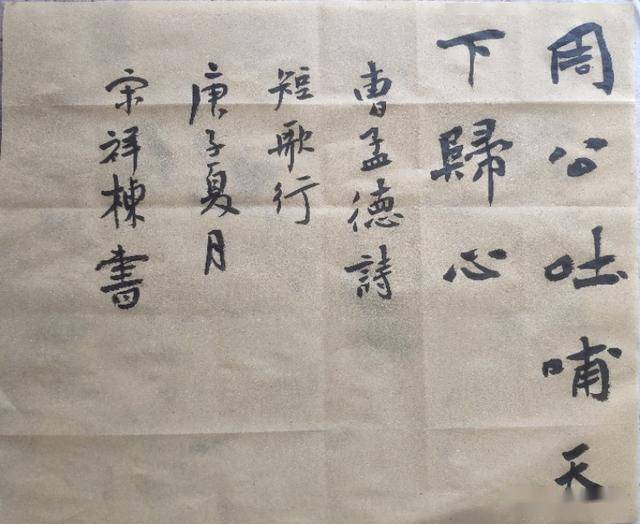 周公吐哺天
下歸心
曹孟德詩
短歌行
庚子夏月
宋祥棟書